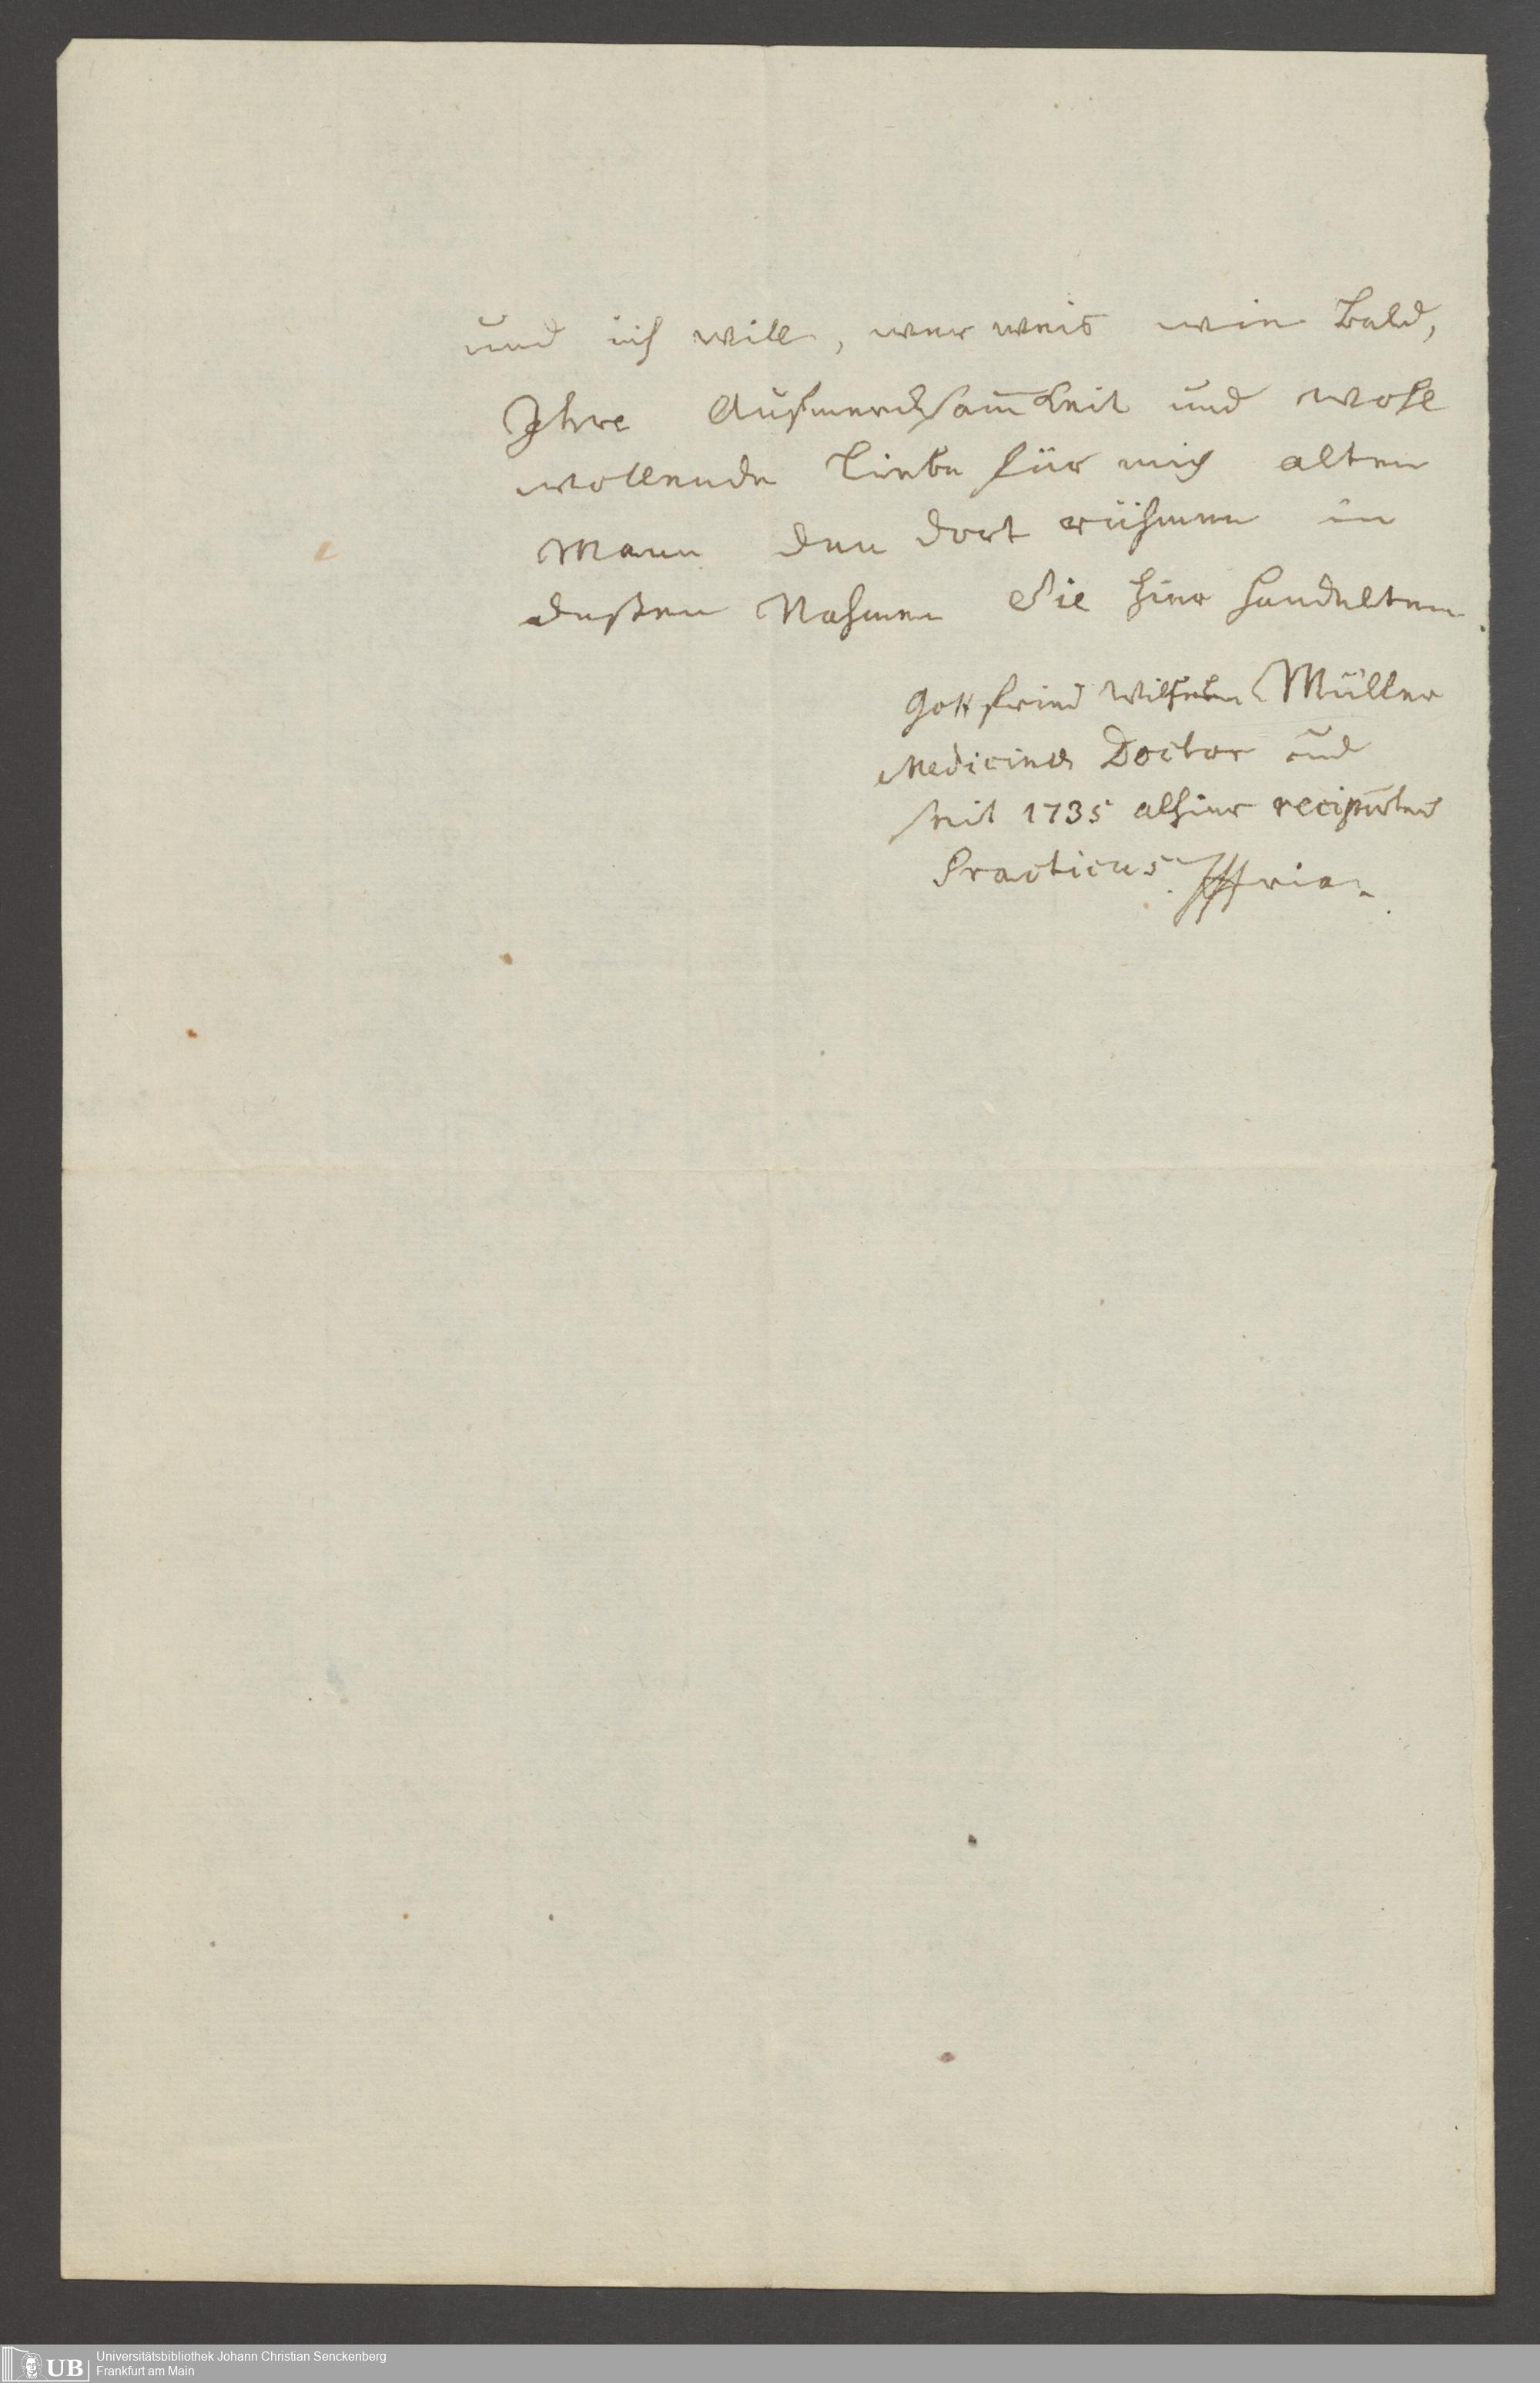 und ich will, wer weis wie bald,
Ihre Aufmercksam̅keit und wohl
wollende Liebe für mich alten
Mann den dort rühmen in
deßen Nahmen Sie hier handelten.
Gottfried Wilhelm Müller
Medicinæ Doctor und
seit 1735 alhier recipirter
Practicus.
UB Universitätsbibliothek Johann Christian Senckenberg
Frankfurt am Main